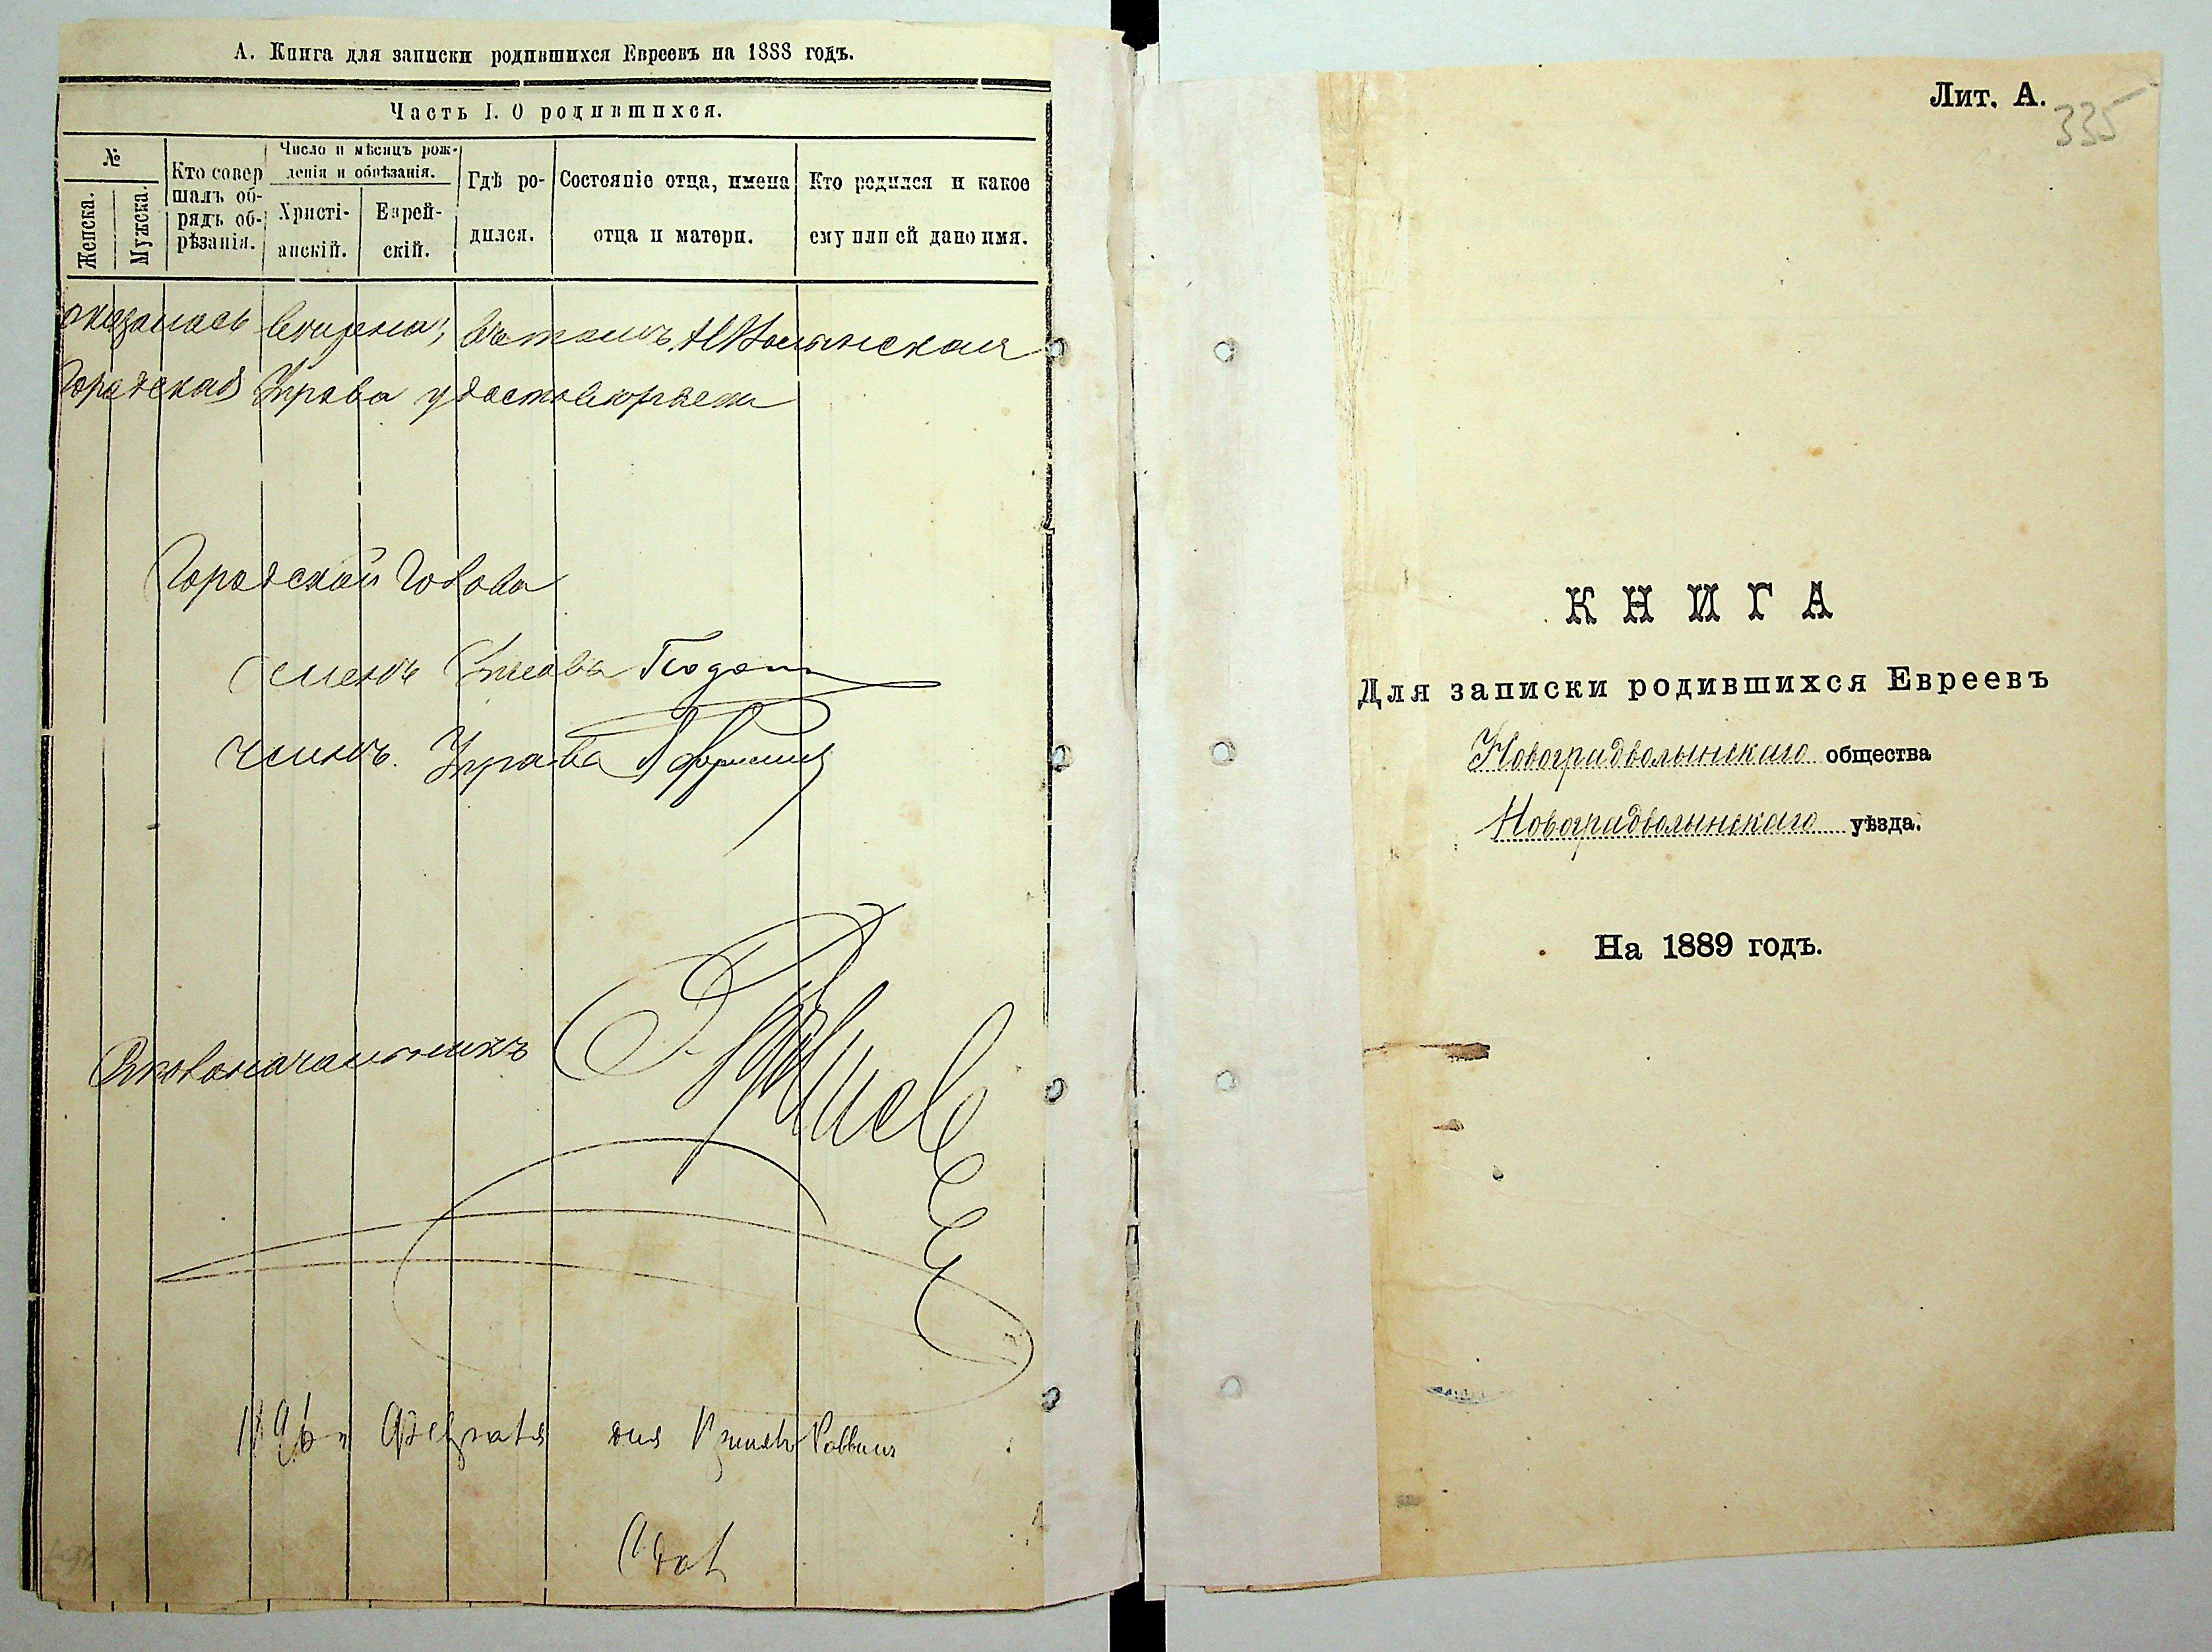 А. Книга для записки родившихся Евреевъ на 1888 годъ.
Часть I. О родившихся.
№
Женска.
Мужска.
Кто совер
шалъ об-
рядъ об-
рѣзанія.
Число и мѣсяцъ рож-
денія и обрѣзанія.
Христі-
анскій.
Еврей-
скій.
Гдѣ ро-
дился.
Состояніе отца, имена
отца и матери.
Кто родился и какое
ему или ей дано имя.
оказалась вѣрна; въ томъ Н Волынская
Городская Управа удостовѣряетъ
Городской Голова
Членъ Управы
Членъ Управы
Столоначальникъ
Лит. А.
335
КНИГА
Для записки родившихся Евреевъ
Новоградволынскаго общества
Новоградволынскаго уѣзда.
На 1889 годъ.